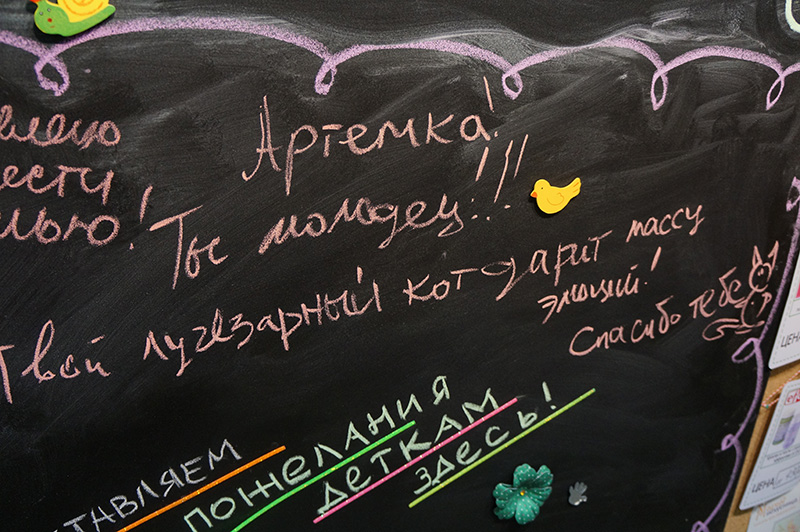 Артемка!
Ты молодец!!!
Твой лучезарный кот дарит массу
эмоций!
Спасибо тебе
ПОЖЕЛАНИЯ
ДЕТКАМ
ЗДЕСЬ!
ЦЕНА
ЦЕНА